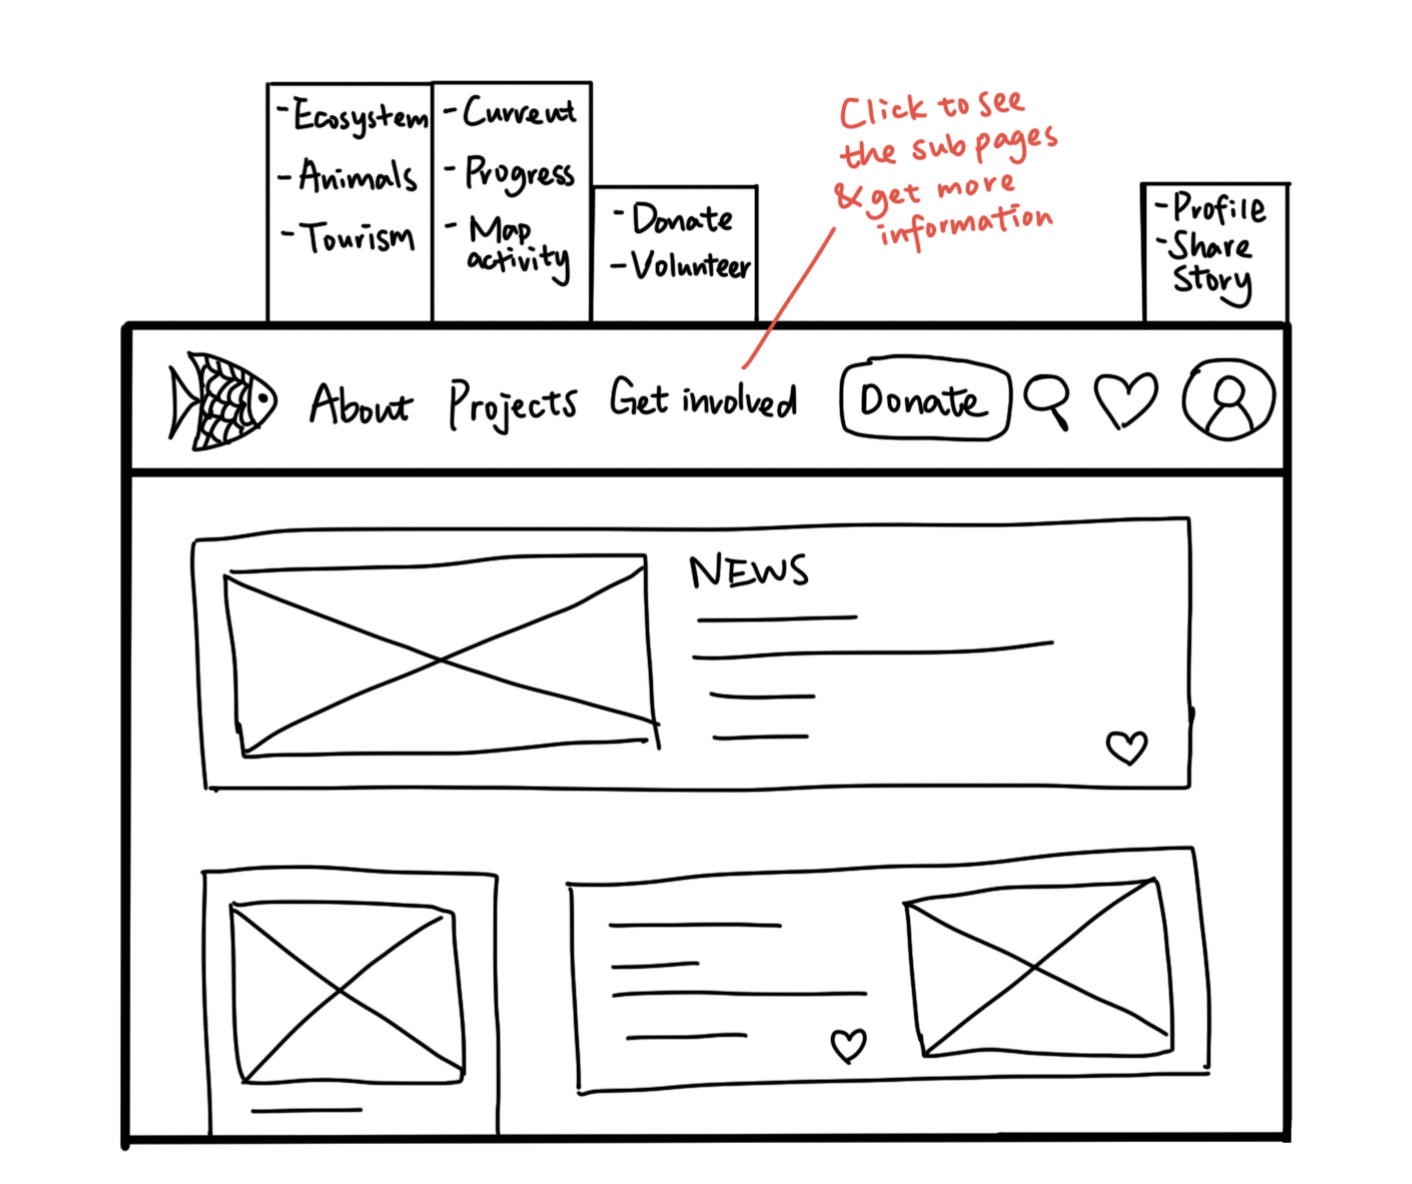 - Ecosystem
- Animals
- Tourism
- Current
- Progress
- Map
activity
- Donate
- Volunteer
Click to see
the sub pages
& get more
information
- Profile
- Share
Story
About Projects Get involved Donate
NEWS